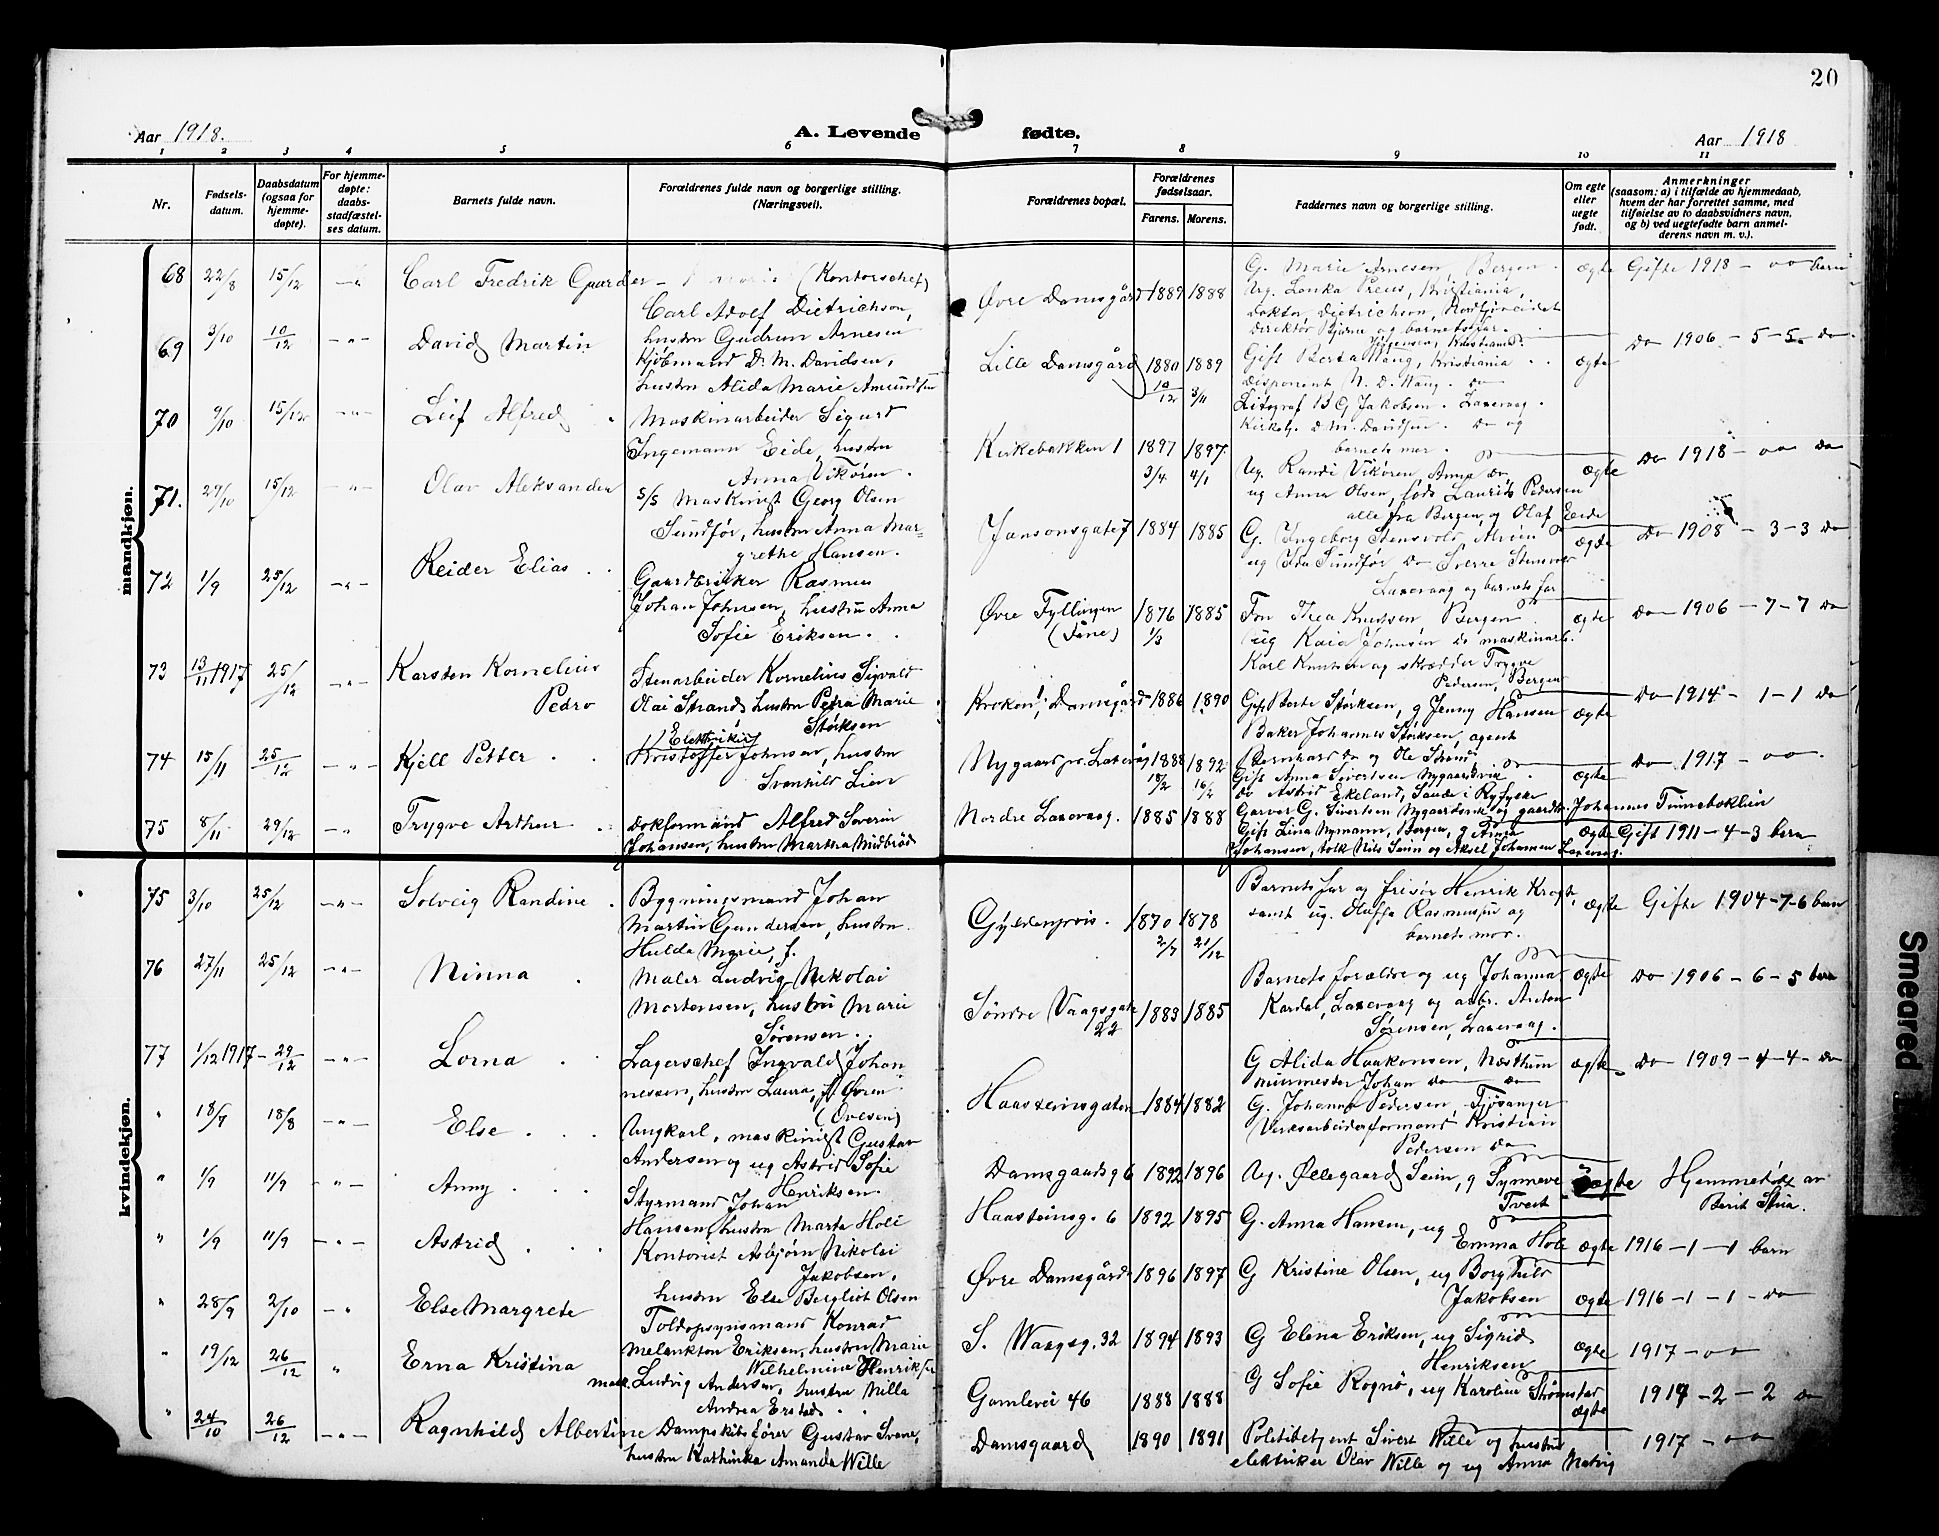 20
Aar 1918.
A. Levende fødte.
Aar 1918
1 2 3 4 5 6 7 8 9 10 11
Nr.
Fødsels-
datum.
Daabsdatum
(ogsaa for
hjemme-
døpte).
For hjemme-
døpte:
daabs-
stadfæstel-
ses datum.
Barnets fulde navn.
Forældrenes fulde navn og borgerlige stilling.
(Næringsvei).
Forældrenes bopæl.
Forældrenes
fødselsaar.
Farens. Morens.
Faddernes navn og borgerlige stilling.
Om egte
eller
uegte
født.
Anmerkninger
(saasom: a) i tilfælde av hjemmedaab,
hvem der har forrettet samme, med
tilføielse av to daabsvidners navn,
og b) ved uegtefødte barn anmel-
derens navn m. v.).
mandkjøn.
68 22/8 15/12 Carl Fredrik Gaarder
(Kontorschef)
Carl Adolf Dietrichson,
hustru Gudrun Arnesen
Øvre Damsgård 1889 1888
G. Marie Arnesen, Bergen.
Ug. Lonka Preus, Kristiania,
doktor Dietrichson,
direktør Bjarne og barnets far.
ægte Gifte 1918 - oo barn
69 3/10 10/12 -"- David Martin
Kjøbmand D. M. Davidsen,
hustru Alida Marie Amundsen
Lille Damsgård 1880 1889
10/12 3/11
Gift Berta Wang, Kristiania
disponent N. D. Wang. do
Litograf B G Jakobsen. Laxevaag.
Kirkelg. D. M. Davidsen. Do og
barnets mor.
ægte Do 1906 - 5 - 5 Do
70 9/10 15/12 -"- Leif Alfred
Maskinarbeider Sigurd
Ingemann Eide, hustru
Anna Vikøren.
Kirkebakken 1 1897 1897
3/4 4/1
Ug. Randi Vikøren, Anna do
ug Anna Olsen, Lauritz Pedersen
alle fra Bergen, og Olaf Eide
ægte Do 1918 - oo Do
71. 29/10 15/12 -"- Olav Aleksander
S/S Maskinist Georg Olsen
Sundfør, hustru Anna Mar-
grethe Hansen.
Jansonsgate 7 1884 1885
G. Ingeborg Stensvold,
ug Ida Sundfør Do Sverre
Laxevaag og barnets far
ægte Do 1908 - 3 - 3 Do
72 1/9 25/12 -"- Reider Elias
Gaardbruker Rasmus
Johan Johnsen, hustru Anna
Sofie Eriksen.
Øvre Fyllingen
(Fane)
1876 1885
1/3
Thea Knutsen Bergen
ug Kaia Johnsen do maskinarb.
Karl Knutsen og skrædder Trygve
Pedersen, Bergen
ægte Do 1906 - 7 - 7 Do
73 13/11 1917 25/12 -"- Karsten Kornelius
Pedro
Stenarbeider Kornelius Sigvald
Olai Strand, hustru Petra Marie
Størksen
Kroken 1, Damsgård 1886 1890
Gift Berte Størksen, g Jenny Hansen
Baker Johannes Størksen, agent
Bernhard Do og Ole Strand
ægte Do 1914 - 1 - 1 Do
74 15/11 25/12 -"- Kjell Petter
Elektriker
Kristoffer Johnsen, hustru
Svanhild Lien
Nygaard pr. Laxevåg 1888 1892
18/2 16/2
Gift Anna Sivertsen Nygaardsvik
do Astrid Ekeland, Saude i Ryfylke
Garver G. Sivertsen Nygaardsvik og gaardbr. Johannes Tinneboklein
ægte Do 1917 - oo
75 8/11 29/12 -"- Trygve Arthur
Dokformand Alfred Severin
Johansen, hustru Martha Midbrød
Nordre Laxevaag. 1885 1888
Gift Lina Nymann, Bergen, g Anna
Johansen, tolk Nils Seim og Aksel Johansen Laxevaag.
ægte Gift 1911 - 4 - 3 barn
kvindekjøn.
75 3/10 25/12 -"- Solveig Randine
Bygningsmand Johan
Martin Gundersen, hustru
Hulda Marie, f.
Gyldenpris. 1870 1878
2/7 21/12
Barnets far og frisør Henrik Krogh,
samt ug. Oluffa Rasmussen og
barnets mor.
ægte Gifte 1904 - 7 - 6 barn
76 27/11 25/12 -"- Ninna
Maler Ludvig Nikolai
Mortensen, hustru Marie
Sørensen.
Søndre Vaagsgate
22
1883 1885
Barnets forældre og ug Johanna
Kardal, Laxevaag og arbr. Anton
Sørensen, Laxevaag.
ægte Do 1906 - 6 - 5 barn
77 1/12 1917 - 29/12 -"- Lorna
Lagerschef Ingvald Johan-
nesen, hustru Laura, f. Øvren
(Ovesen)
Haasteinsgaten 1884 1882
G Alida Haakonsen, Næsttun
murmester Johan do do
G. Johanna Pedersen, Fjøsanger
Verksarbeiderformand Kristian
Pedersen Do
ægte Do 1909 - 4 - 4 - Do
" 18/7 18/8 -"- Else
Ungkarl, maskinist Gustav
Andersen og ug Astrid Sofie
Henriksen.
Damsgaardsg 6 1892 1896
Ug. Øllegaard Seim, g Synneve
Tveit
uægte Hjemmedøpt av
Berit Stua.
" 1/9 11/9 -"- Anny
Styrmand Johan
Hansen, hustru Marta Hole
Haasteinsg. 6 1892 1895
G. Anna Hansen, ug
Emma Hole
ægte 1916 - 1 - 1 barn
" 1/9 11/9 -"- Astrid
Kontorist Asbjørn Nikolai
Jakobsen,
hustru Else Bergliot Olsen
Øvre Damsgård 1896 1897
G Kristine Olsen, ug Borghild
Jakobsen
ægte 1916 - 1 - 1 - Do
" 28/9 2/10 -"- Else Margrete
Toldopsynsmand Konrad
Melankton Eriksen, hustru Marie
Wilhelmine Henriksen
S. Waagsg. 32 1894 1893
G Elena Eriksen, ug Sigrid
Henriksen
ægte 1917 - oo
" 19/12 26/12 " Erna Kristina
mask. Ludvig Andersen, hustru Milla
Andrea Erstad.
Gamlevei 46 1888 1888
G Sofie Rognø, ug Karoline Strømstad
ægte 1917 - 2 - 2 Do
" 24/10 26/12 -"- Ragnhild Albertine
Dampskibsfører Gustav Svane,
hustru Kathinka Amanda Wille
Damsgaard 1890 1891
Politibetjent Sivert Wille og hustru
elektriker Olav Wille og ug Anna Natvig
1917 - oo
Smeared